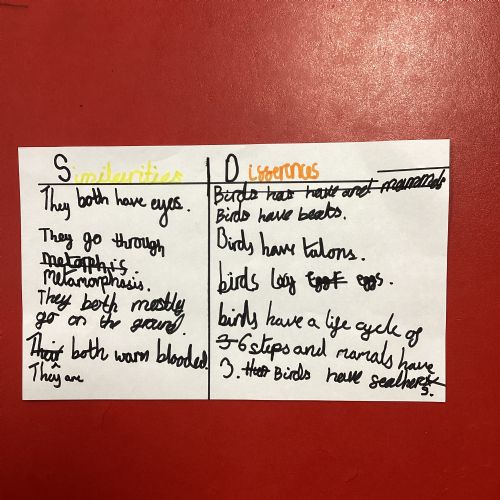 Similarities
They both have eyes.
They go through
metarphis
metamorphosis.
They both mostly
go on the ground.
Their both warm blooded.
They are
Disserences
Birds has have and mamamals
Birds have beaks.
Birds have talons.
birds lay eggs.
birds have a life cycle of
6 steps and mamals have
3. Birds have seathers.